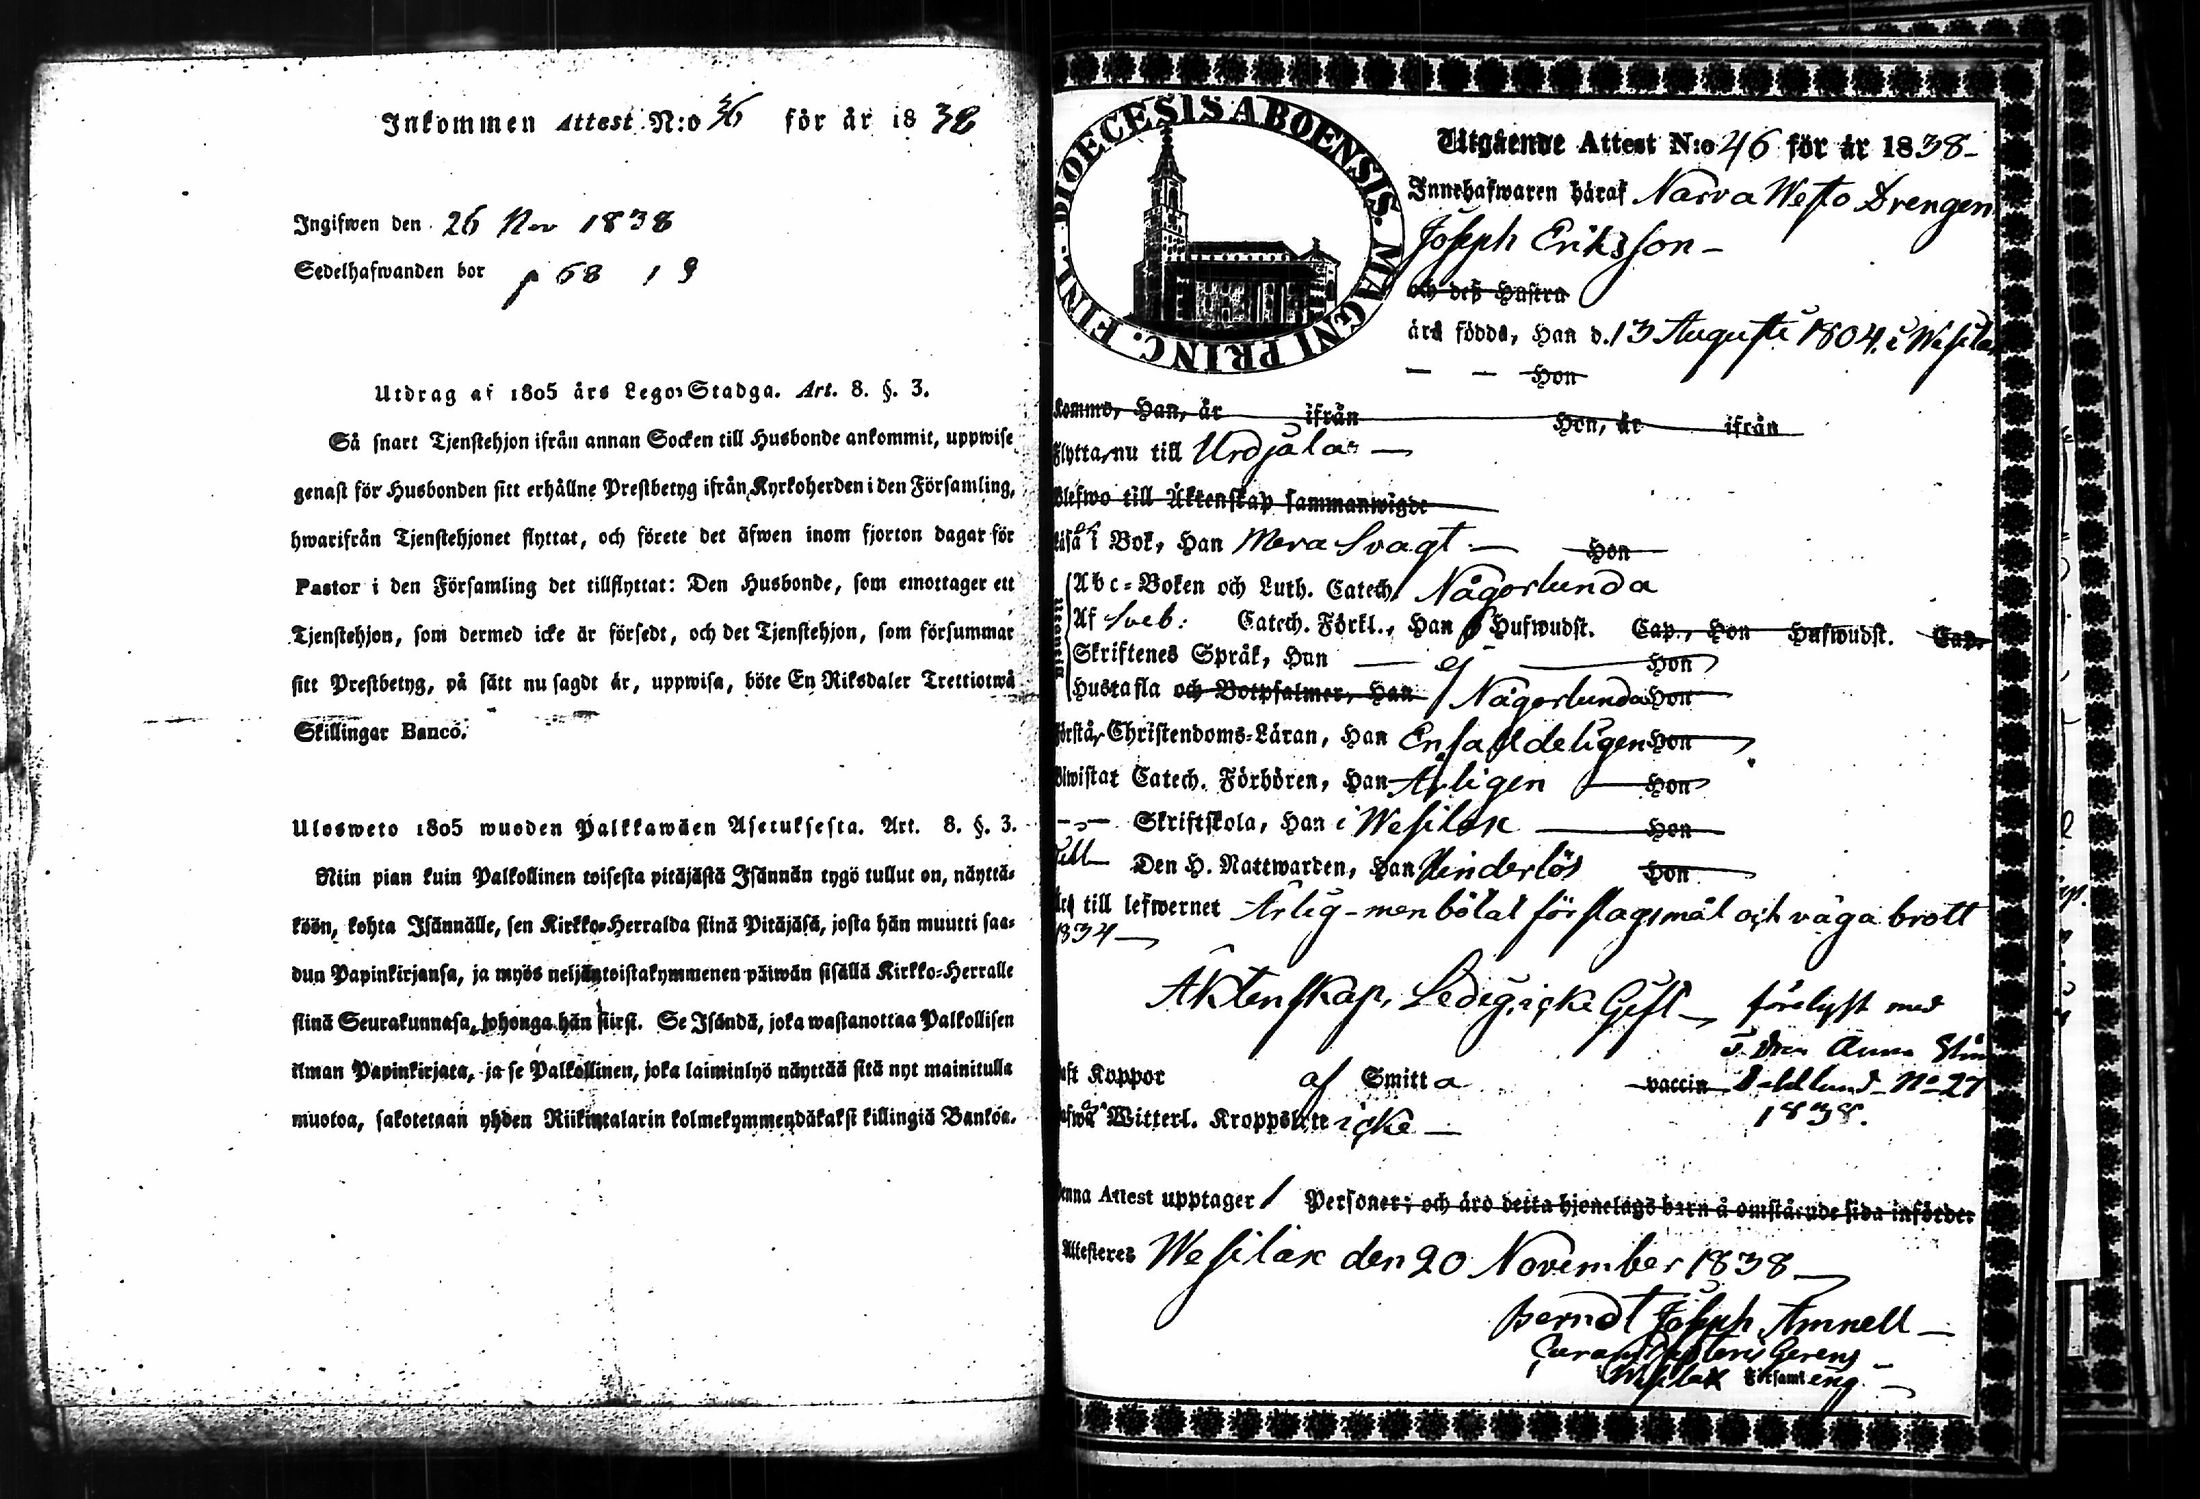 Inkommen Attest N:o 36 för år 1838
Ingifwen den 26 Nov 1838
Sedelhafwanden bor p 68 19
Utdrag af 1805 års Lego-Stadga. Art. 8. §. 3.
Så snart Tjenstehjon ifrån annan Socken till Husbonde ankommit, uppwise
genast för Husbonden sitt erhållne Prestbetyg ifrån Kyrkoherden i den Församling,
hwarifrån Tjenstehjonet flyttat, och förete det äfwen inom fjorton dagar för
Pastor i den Församling det tillflyttat: Den Husbonde, som emottager ett
Tjenstehjon, som dermed icke är försedt, och det Tjenstehjon, som försummar
sitt Prestbetyg, på sätt nu sagdt är, uppwisa, böte En Riksdaler Trettiotwå
Skillingar Banco.
Ulosweto 1805 wuoden Palkkawäen Asetuksesta. Art. 8. §. 3.
Niin pian kuin Palkollinen toisesta pitäjästä Isännän tygö tullut on, näyttä-
köön, kohta Isännälle, sen Kirkko-Herralda siinä Pitäjäsä, josta hän muutti saa-
dun Papinkirjansa, ja myös neljäntoistakymmenen päiwän sisällä Kirkko-Herralle
siinä Seurakunnasa, johonga hän siirst. Se Isändä, joka wastanottaa Palkollisen
ilman Papinkirjata, ja se Palkollinen, joka laiminlyö näyttää sitä nyt mainitulla
muotoa, sakotetaan yhden Riikintalarin kolmekymmendäkaksi killingiä Bankoa.
DIOECESIS ABOENSIS. MAGNI PRINC. FINL.
Utgående Attest N:o 46 för år 1838-
Innehafwaren häraf Narva Westo Drengen
Joseph Eriksson-
och deß Hustru
äro födde, Han d. 13 Augusti 1804. i Wesila
Hon
komme, Han, är ifrån Hon, är ifrån
Flytta nu till Urdjala
Blefwo till Äktenskap sammanwigde
i Bok, Han Mera Svagt Hon
Abc-Boken och Luth. Catech. Någorlunda
Af Sveb: Catech. Förkl., Han Hufwudst. Cap., Hon Hufwudst. Cap.
Skriftenes Språk, Han ej Hon
Hustafla och Botpsalmer, Han Någorlunda Hon
Förstå Christendoms-Läran, Han Enfaldeligen Hon
Biwistat Catech. Förhören, Han Årligen Hon
Skriftskola, Han i Wesilax Hon
Den H. Nattwarden, Han Hinderlös Hon
till lefwernet Ärlig-men bötat för slagsmål och våga brott
1834
Äktenskap, Ledig, icke Gift förelyst med
Anna Stin
haft Koppor af Smitta vaccin Dahlund No 27
1838.
Witterl. Kroppslyte icke
Denna Attest upptager 1 Personer; och äro detta hjonelags barn å omstående sida införde.
Attesteres Wesilax den 20 November 1838
Berndt Joseph Amnell
Pastoris Gerens
Wesilax Församling